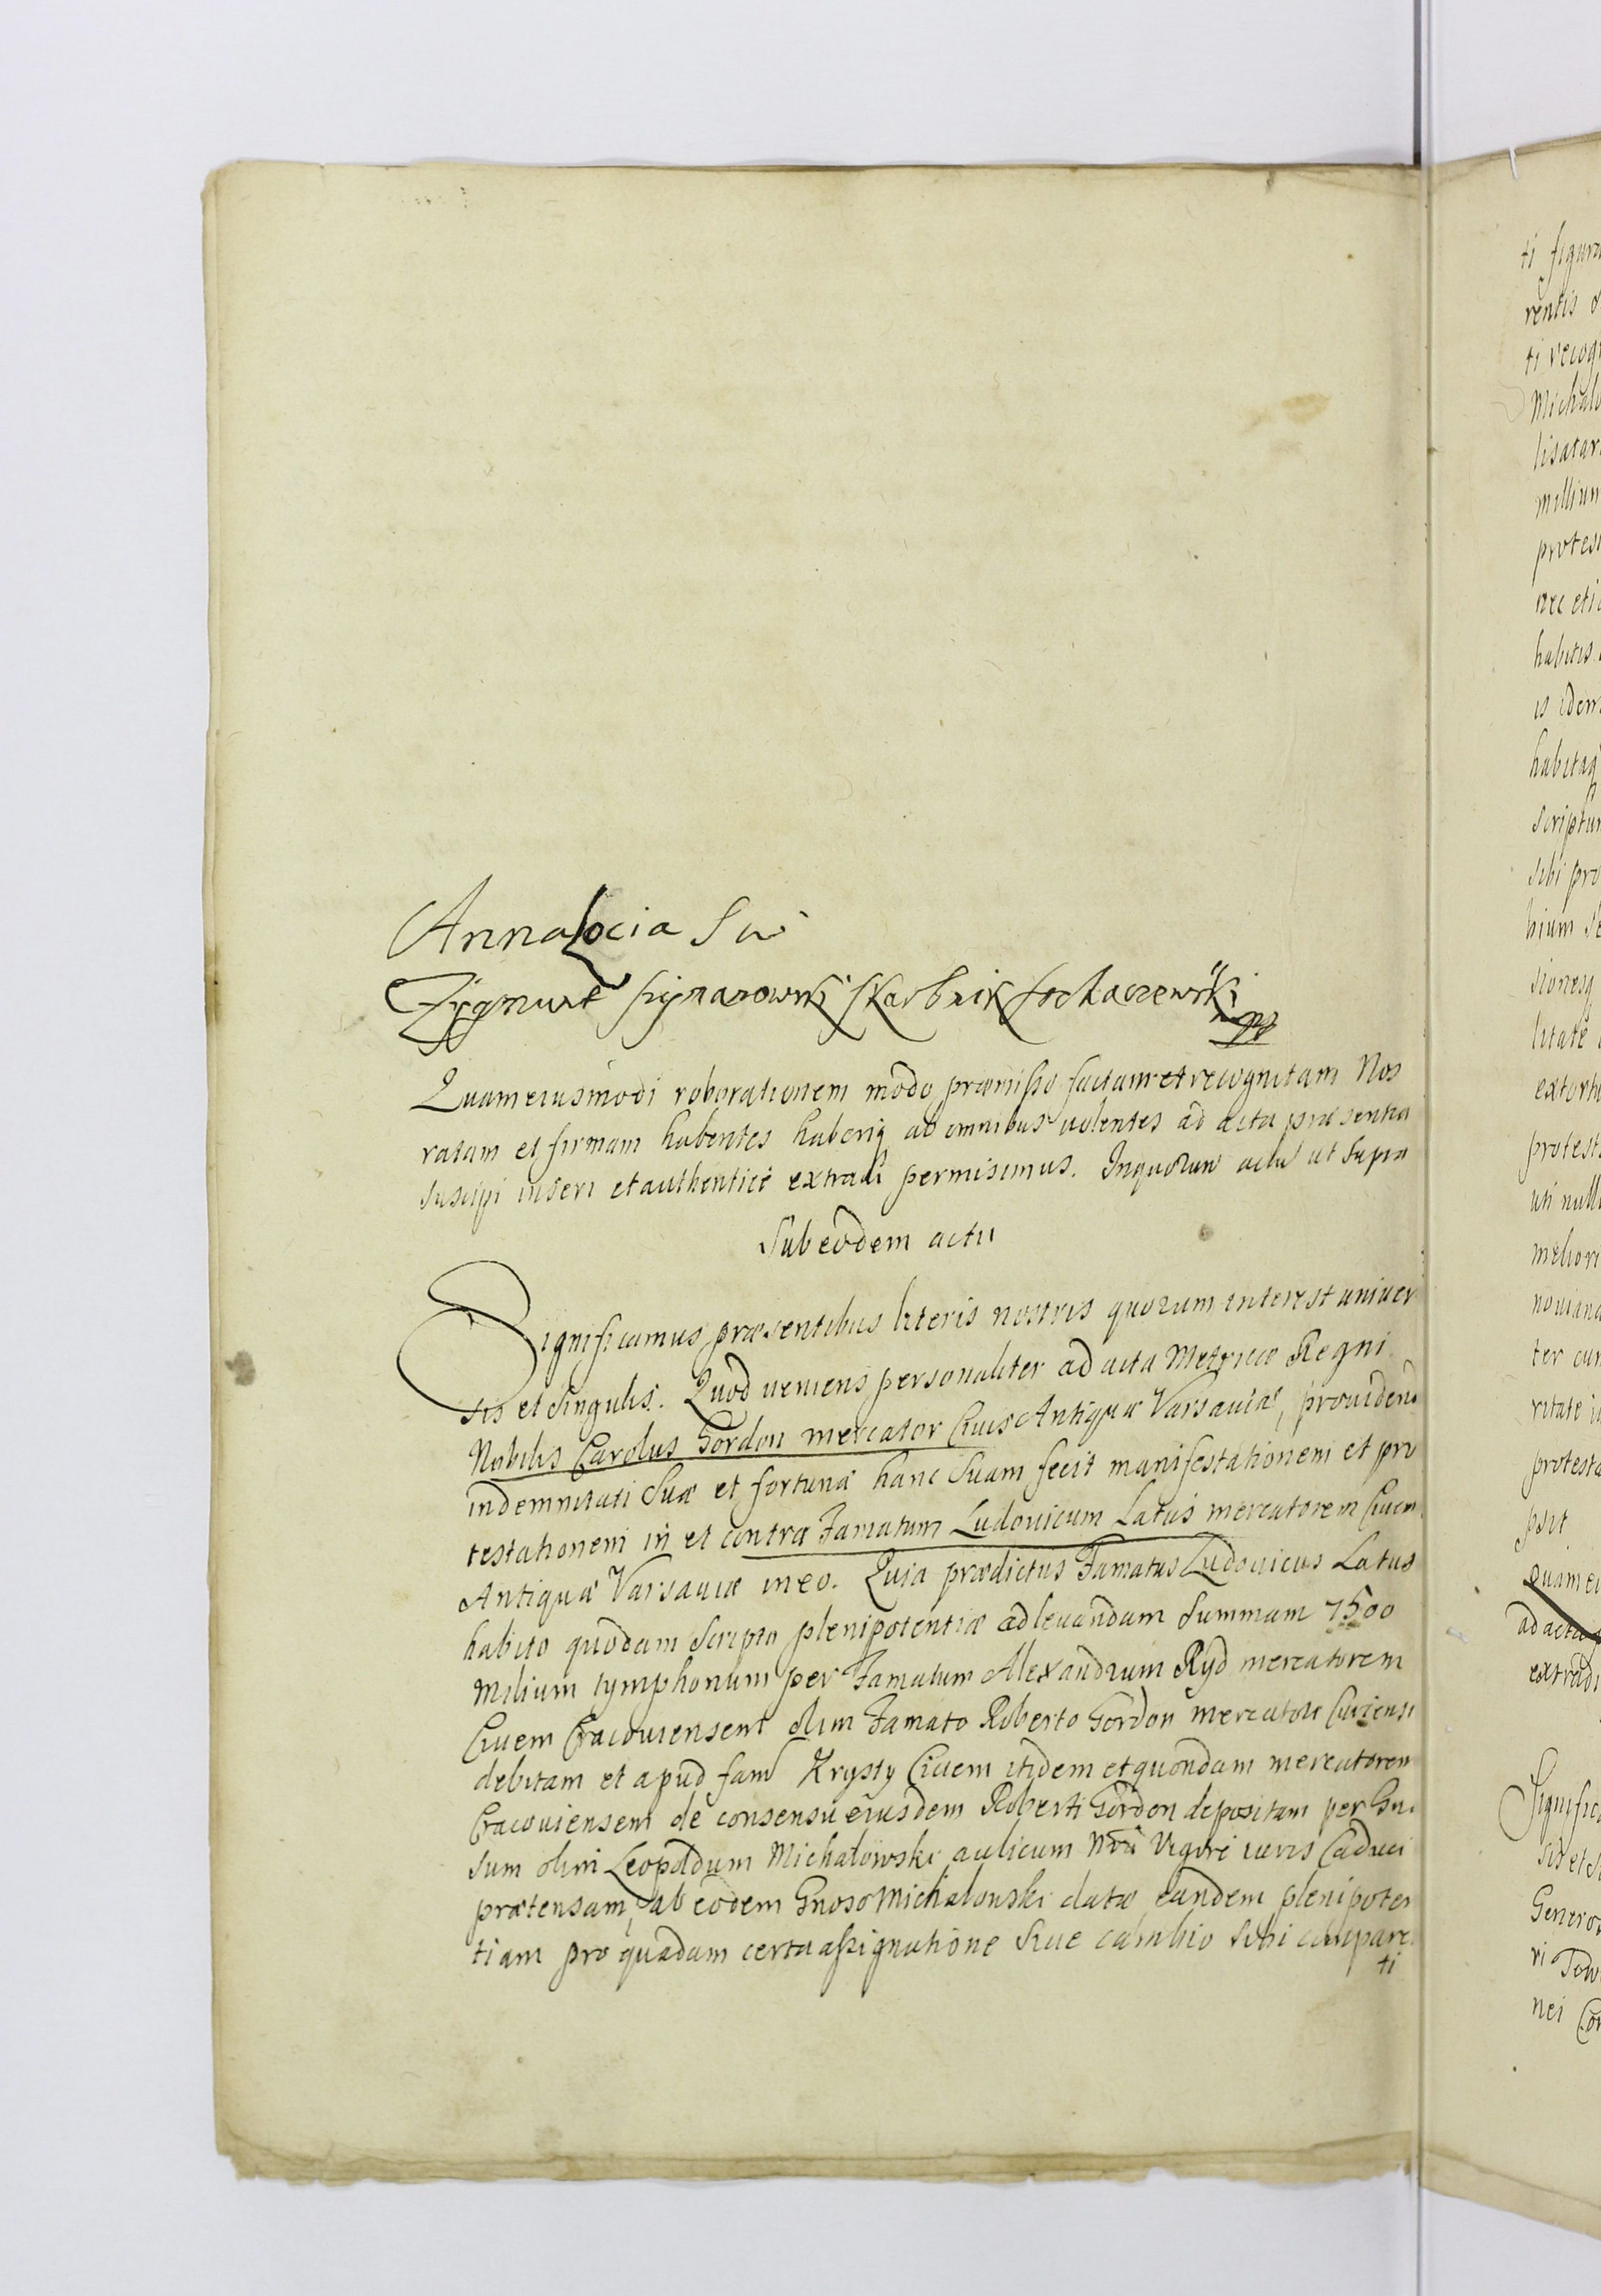 Anna Locia
Zygmunt Szymanowski Skarbnik Sochaczewski
mp
Quameiusmodi roborationem modo præmisso factam et recognitam Nos
ratam et firmam habentes haberiq ab omnibus volentes ad acta præsentia
suscipi inseri et authentice extradi permisimus. Inquorum actu ut supra
Sub eodem actu
Significamus præsentibus literis nostris quorum interest univer
sis et singulis. Quod veniens personaliter ad acta Metricæ Regni
Nobilis Carolus Gordon mercator Civis Antiquæ Varsaviæ, providend
indemnitati suæ et fortunæ hanc suam fecit manifestationem et pro
testationem in et contra Famatum Ludovicum Latus mercatorem Civem
Antiquæ Varsaviæ ineo. Quia prædictus Famatus Ludovicus Latus
habito quodam scripto plenipotentiæ ad levandam summam 7500
milium tymphonum per Famatum Alexandrum Ryd mercatorem
Civem Cracoviensem olim Famato Roberto Gordon mercatori
debitam et apud fam Krysty Civem itidem et quondam mercatorem
Cracoviensem de consensu eiusdem Roberti Gordon depositam per Gn
sum olim Leopoldum Michalowski aulicum Nrū vigore iuris Caduci
prætensam, ab eodem Gnoso Michalouski datæ eandem plenipoten
tiam pro quadam certa assignatione sive cambio sibi compare
ti
ti figura
rentis
ti recog
Michalo
lisatar
millium
protes
nec eti
habitis
is idem
habitaq
scriptum
sibi pro
bium se
sionesq
litate
extort
protest
uti null
meliori
novand
ter cum
ritate i
protesta
psit
Quamei
ad acta p
extradi
Signific
sis et s
Generos
ri Tow
nei Con